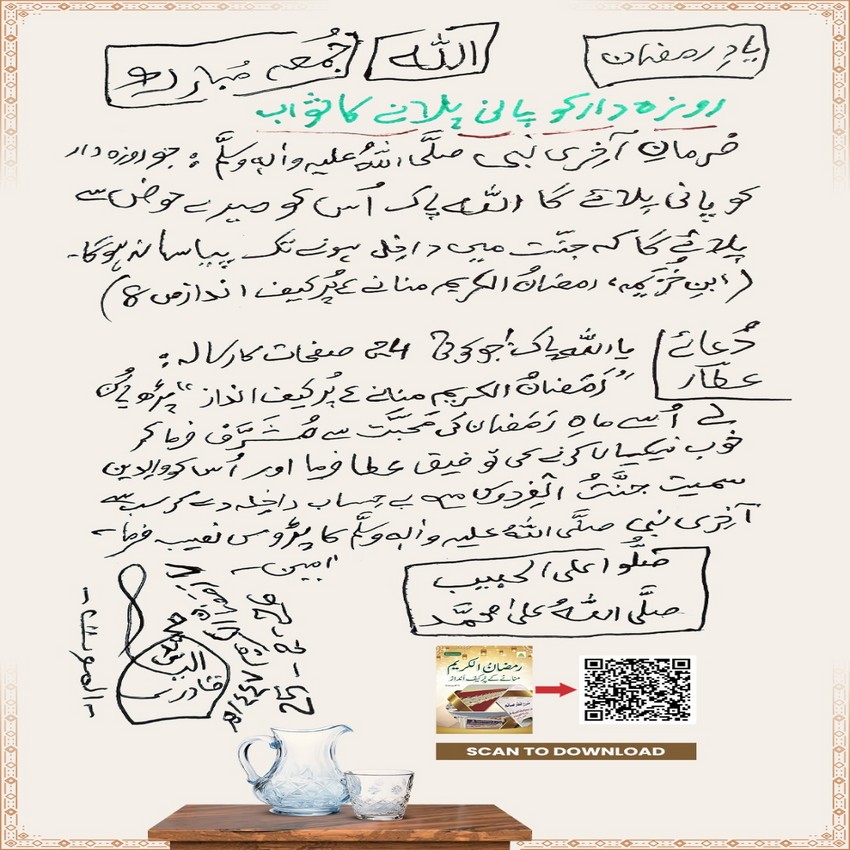 یادِ رمضان
اللہ
جُمعہ مُبارک
روزہ دار کو پانی پلانے کا ثواب
فرمانِ آخری نبی صلَّی اللہُ علیہ واٰلہٖ وسلَّم: جو روزہ دار
کو پانی پلائے گا اللہ پاک اُس کو میرے حوض سے
پلائے گا کہ جنّت میں داخِل ہونے تک پیاسا نہ ہوگا۔
(ابنِ خُزَیمہ، رمضانُ الکریم منانے کے پُرکیف انداز ص 8)
دُعائے عطّار
یا اللہ پاک! جو کوئی 24 صفحات کا رسالہ:
"رَمَضانُ الکریم منانے کے پُرکیف انداز" پڑھ یا سُن
لے اُسے ماہِ رَمَضان کی مَحَبَّت سے مُشَرَّف فرما کر
خوب نیکیاں کرنے کی توفیق عطا فرما اور اُس کو والدین
سمیت جنَّتُ الفِردوس میں بے حِساب داخِلہ دے کر سب سے
آخِری نبی صلَّی اللہُ علیہ واٰلہٖ وسلَّم کا پڑوس نصیب فرما۔
اٰمین۔
صَلُّوا علَی الحبیب
صلَّی اللہُ علٰی محمَّد
قادری
۱۴۴۷ھ
رمضانُ الکریم
منانے کے پُرکیف انداز
SCAN TO DOWNLOAD